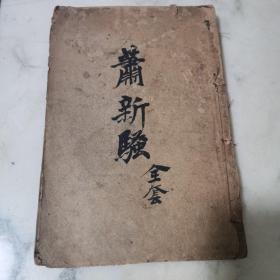 蕭新騐
全套